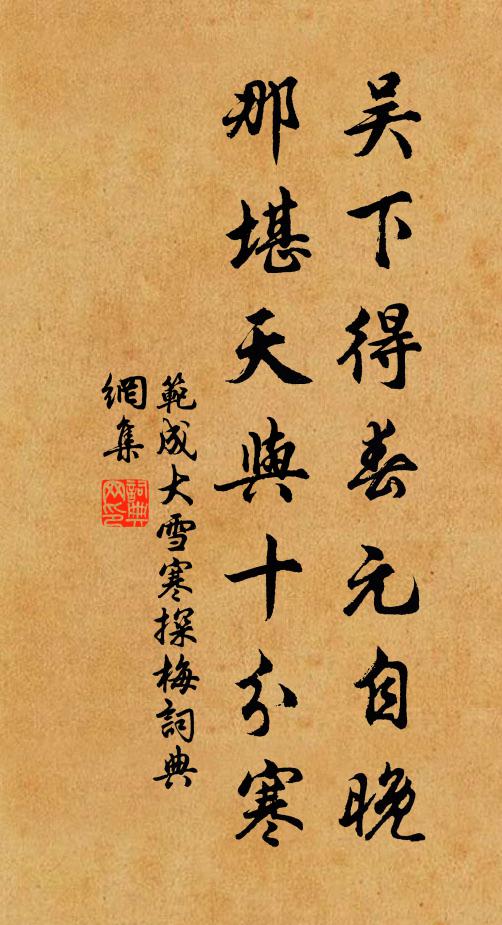 吴下得春元自晚
那堪天與十分寒
範成大雪寒探梅詞典
網集
詞典網印